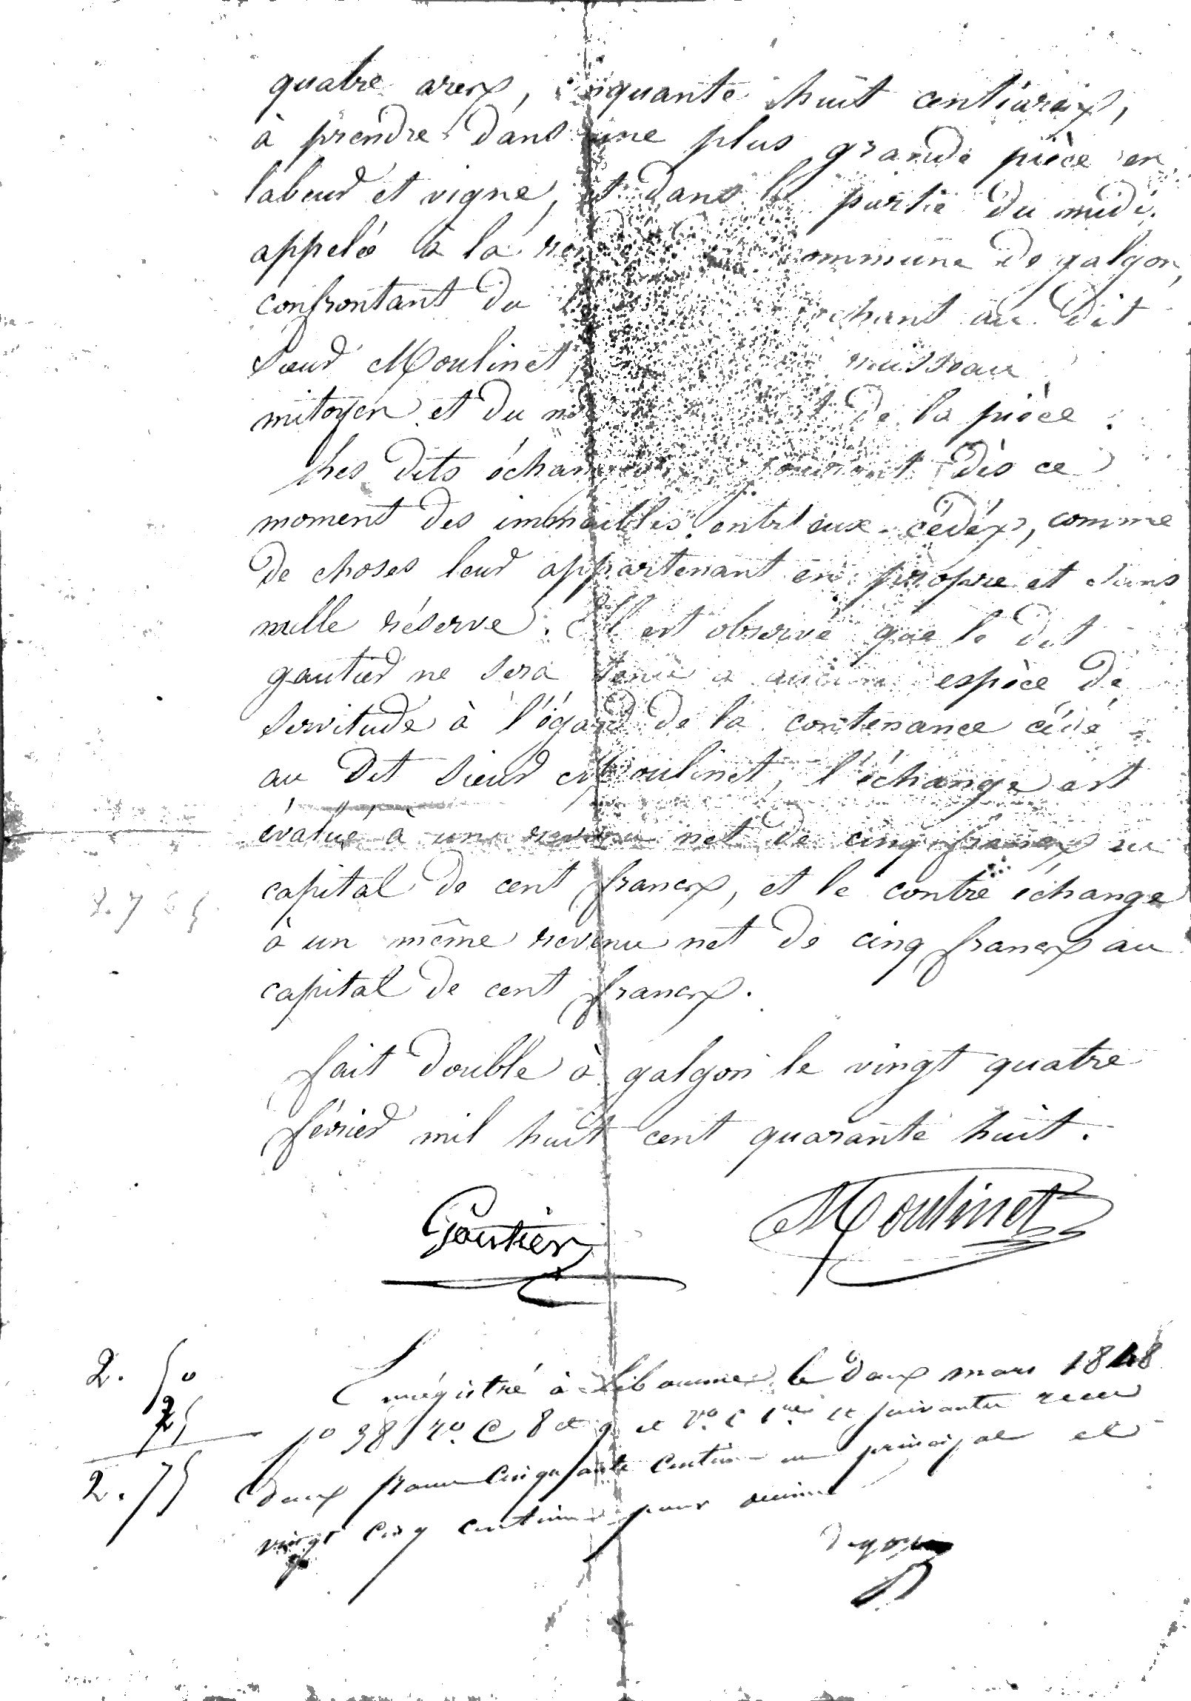 quatre arex, inquante huit centiarex,
à prendre dans une plus grande pièce en
labeur et vigne, et dans partie du midi.
appelé à la commune de galgon,
confrontant du au dit
sieur Moulinet, ruisseau
mitoyen et du de la pièce.
Les dits échan jouiront dès ce
moment des immeubles entr'eux cédéx, comme
de choses leur appartenant en propre et sans
nulle réserve. Il est observé que le dit
gautier ne sera tenu a aucune espèce de
servitude à l'égard de la contenance cédé
au dit sieur Moulinet, l'échange est
évalué à un revenu net de cinq francx au
capital de cent francx, et le contre échange
à un même revenu net de cinq francx au
capital de cent francx.
fait double à galgon le vingt quatre
février mil huit cent quarante huit.
Gautier Moulinet
2. 50
25
2. 75
Enregistré à Libourne le deux mars 1848
fo 98 ro. C 8 et 9 et vo. C 1re et suivantes recu
deux francs cinquante centimes en principal et
vingt cinq centimes pour decime